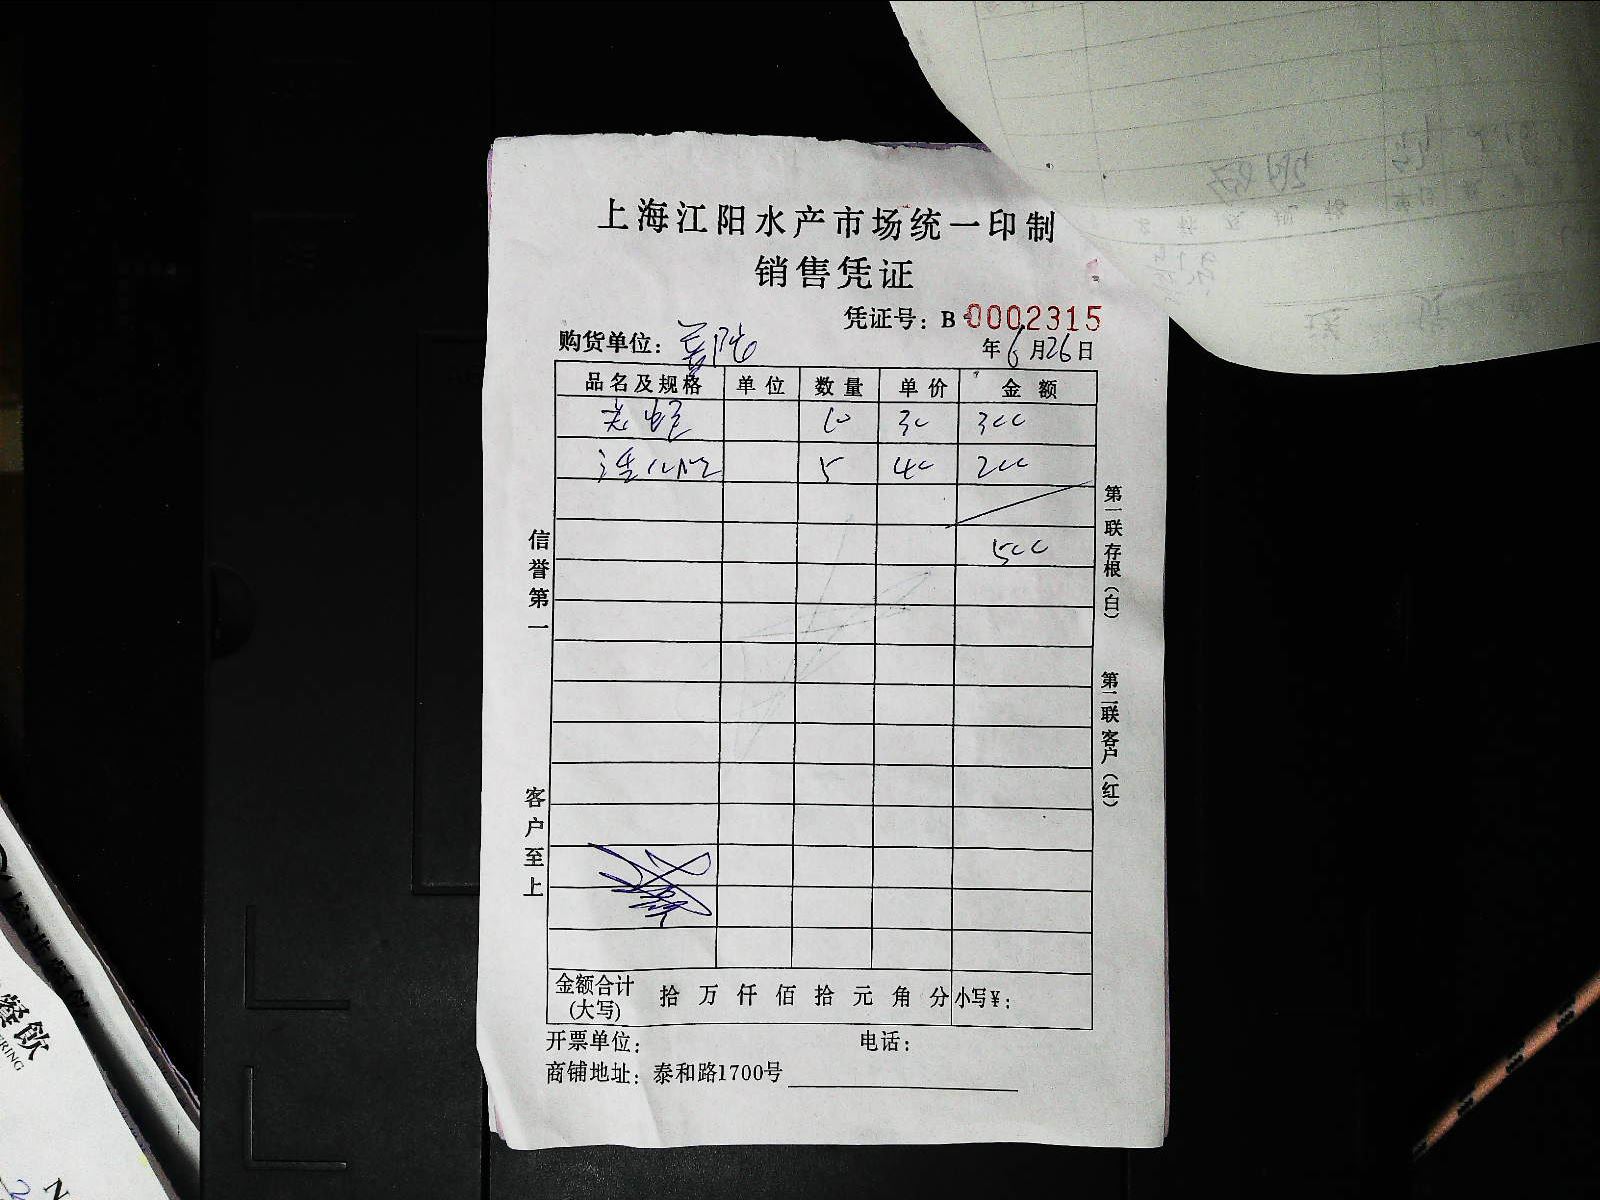 上海江阳水产市场统一印制
销售凭证
凭证号：B 0002315
购货单位：
年6月26日
品名及规格 单位 数量 单价 金额
10 30 300
5 40 200
500
信誉第一
客户至上
第一联存根（白）
第二联客户（红）
金额合计（大写） 拾万仟佰拾元角分 小写¥：
开票单位： 电话：
商铺地址：泰和路1700号
餐饮